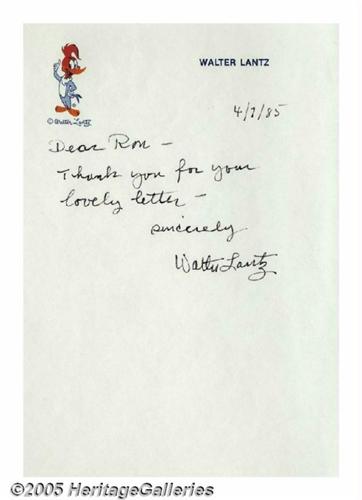 WALTER LANTZ
© Walter Lantz
4/7/85
Dear Ron –
Thank you for your
lovely letter –
sincerely
Walter Lantz
©2005 HeritageGalleries